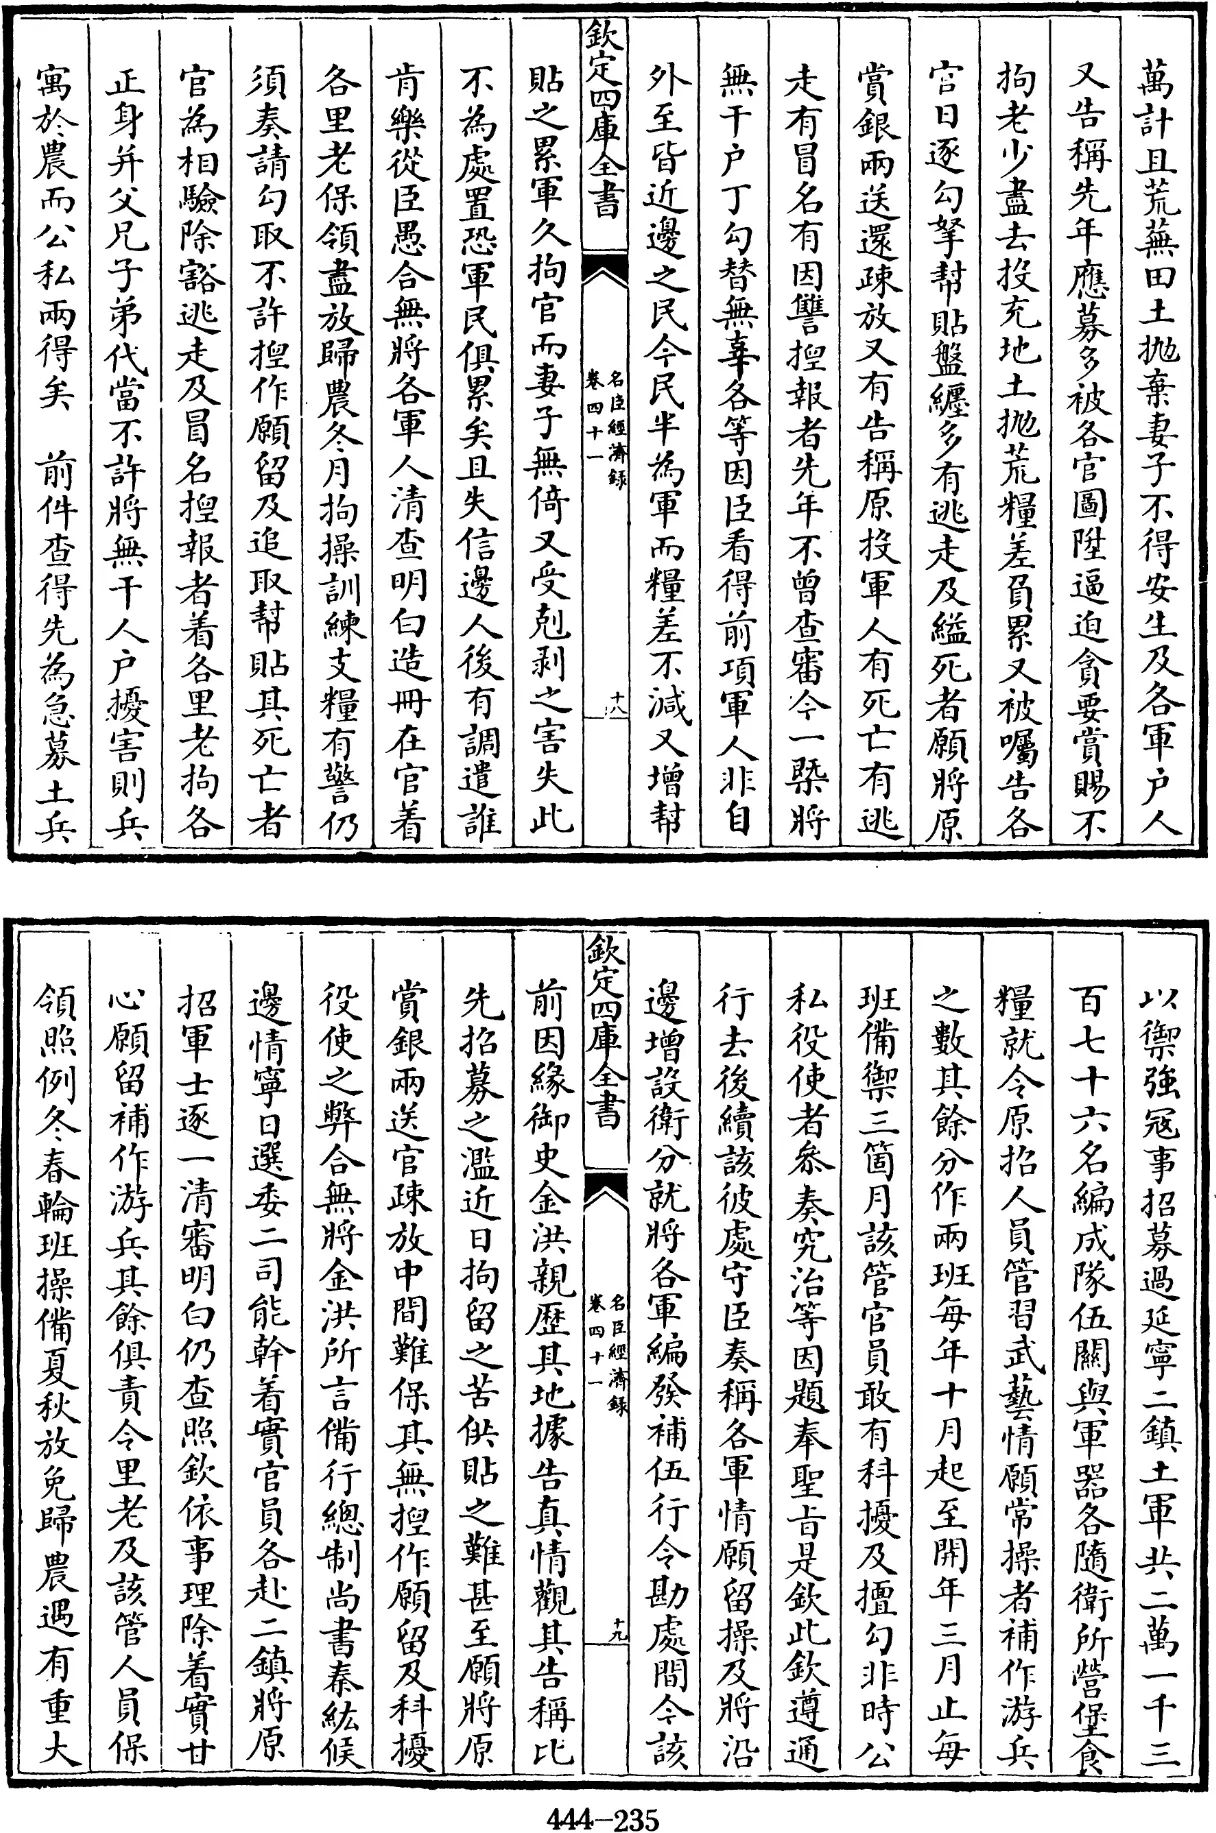 萬計且荒蕪田土拋棄妻子不得安生及各軍户人
又告稱先年應募多被各官圖陞逼迫貪要賞賜不
拘老少盡去投充地土拋荒糧差負累又被囑告各
官日逐勾拏幫貼盤纏多有逃走及縊死者願將原
賞銀兩送還疎放又有告稱原投軍人有死亡有逃
走有冒名有因讐揑報者先年不曾查審今一槩將
無干户丁勾替無辜各等因臣看得前項軍人非自
外至皆近邊之民今民半為軍而糧差不減又增幫
欽定四庫全書
名臣經濟録
卷四十一
十八
貼之累軍久拘官而妻子無倚又受剋剥之害失此
不為處置恐軍民俱累矣且失信邊人後有調遣誰
肯樂從臣愚合無將各軍人清查明白造冊在官着
各里老保領盡放歸農冬月拘操訓練支糧有警仍
須奏請勾取不許揑作願留及追取幫貼其死亡者
官為相驗除豁逃走及冒名揑報者着各里老拘各
正身并父兄子弟代當不許將無干人户擾害則兵
寓於農而公私兩得矣　前件查得先為急募土兵
以禦強寇事招募過延寧二鎮土軍共二萬一千三
百七十六名編成隊伍關與軍器各隨衛所營堡食
糧就令原招人員管習武藝情願常操者補作游兵
之數其餘分作兩班每年十月起至開年三月止每
班備禦三箇月該管官員敢有科擾及擅勾非時公
私役使者叅奏究治等因題奉聖旨是欽此欽遵通
行去後續該彼處守臣奏稱各軍情願留操及將沿
邊增設衛分就將各軍編發補伍行令勘處間今該
欽定四庫全書
名臣經濟録
卷四十一
十九
前因緣御史金洪親歴其地據告真情觀其告稱比
先招募之濫近日拘留之苦供貼之難甚至願將原
賞銀兩送官疎放中間難保其無揑作願留及科擾
役使之弊合無將金洪所言備行總制尚書秦紘候
邊情寧日選委二司能幹着實官員各赴二鎮將原
招軍士逐一清審明白仍查照欽依事理除着實甘
心願留補作游兵其餘俱責令里老及該管人員保
領照例冬春輪班操備夏秋放免歸農遇有重大
444-235